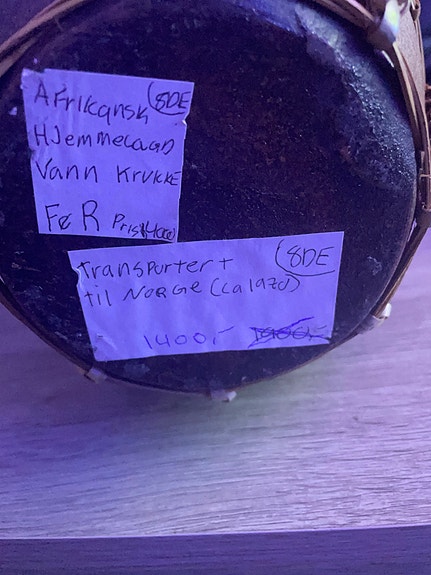 AFrikansk 8DE
HJemmeLagD
Vann KRUKKE
FØR Pris
transPortert 8DE
til NORGE (ca 1970)
1400,-